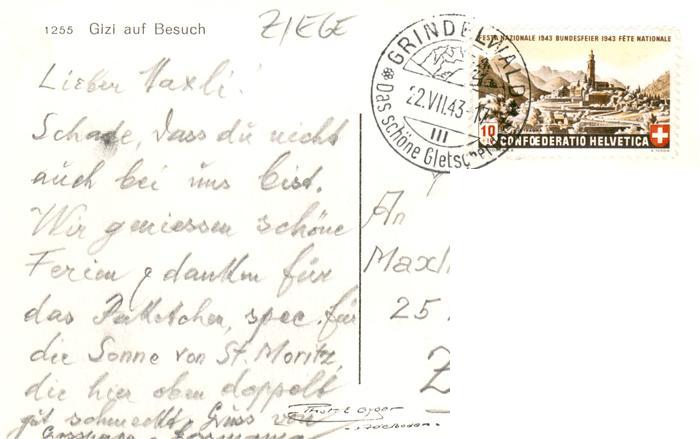 1255 Gizi auf Besuch
ZIEGE
Lieber Maxli!
Schade, dass du nicht
auch bei uns bist.
Wir geniessen schöne
Ferien & danken für
das Päcktchen, spec. für
die Sonne von St. Moritz,
die hier oben doppelt
gut schmeckt. Gruss von
Grossmama
GRINDELWALD
22.VII.43-17
Das schöne Gletsch
III
FESTA NAZIONALE 1943 BUNDESFEIER 1943 FÊTE NATIONALE
10
CONFŒDERATIO HELVETICA
An
Maxli
25.
Z